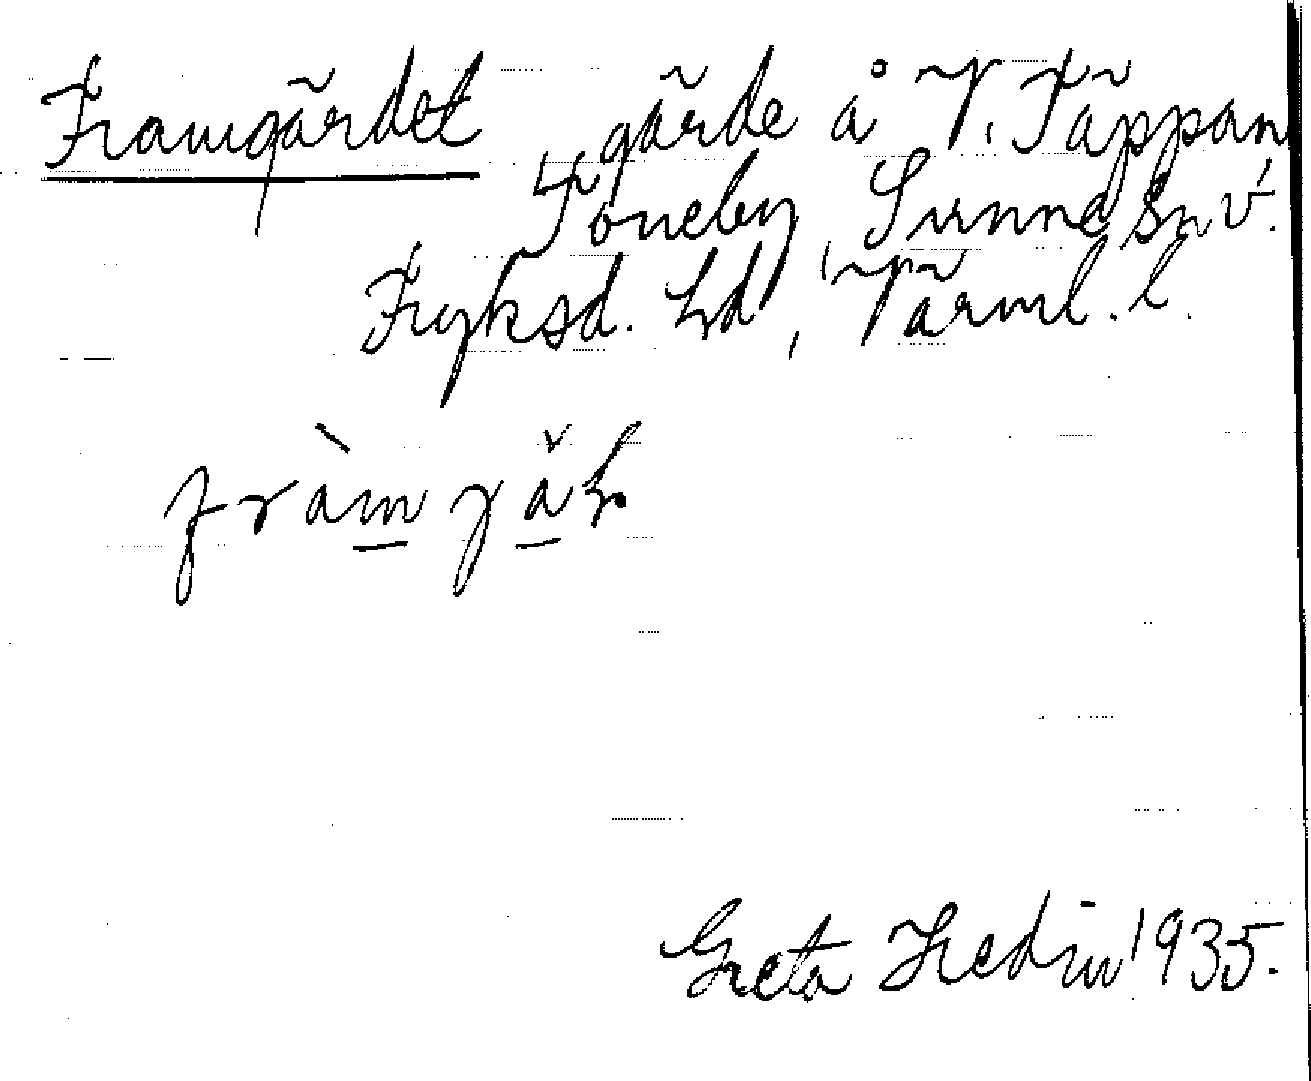 Framgärdet gärde å V. Täppan
Toneby, Sunne sn V.
Fryksd. hd, Värml. l.
Greta Hedin 1935.